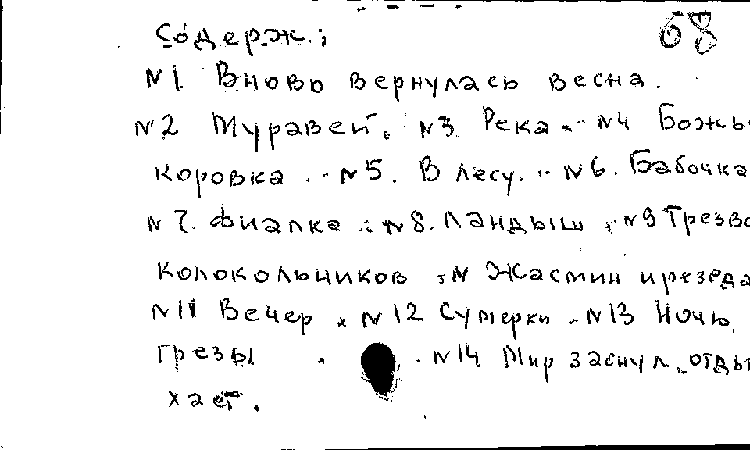 68
Содерж.:
N1. Вновь вернулась весна.
N2 Муравей. N3. Река. N4 Божь
коровка. N5. В лесу. N6. Бабочка
N7. Фиалка. N8. Ландыш. N9 Трезво
колокольчиков. N Жасмин и резеда
N11 Вечер. N12 Сумерки. N13 Ночь.
грезы. N14 Мир заснул, отды
хает.